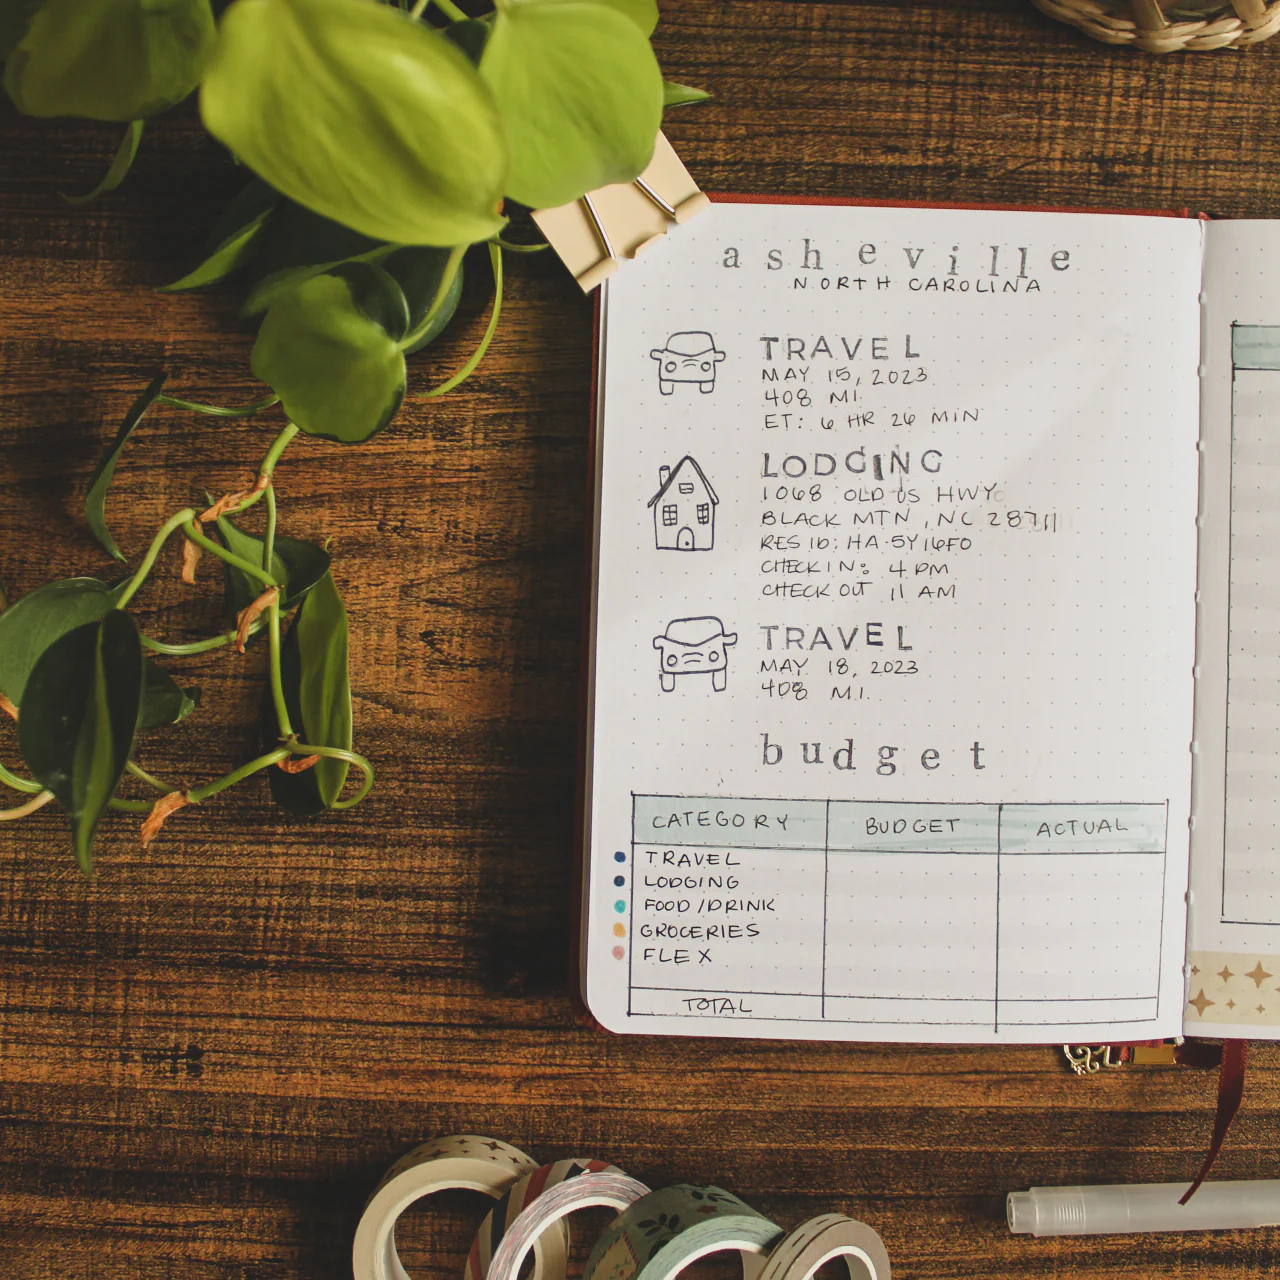 asheville
NORTH CAROLINA
TRAVEL
MAY 15, 2023
408 MI.
ET: 6 HR 26 MIN
LODGING
1068 OLD US HWY
BLACK MTN, NC 28711
RES ID: HA-5Y16F0
CHECK IN: 4 PM
CHECK OUT 11 AM
TRAVEL
MAY 18, 2023
408 MI.
budget
CATEGORY BUDGET ACTUAL
TRAVEL
LODGING
FOOD/DRINK
GROCERIES
FLEX
TOTAL